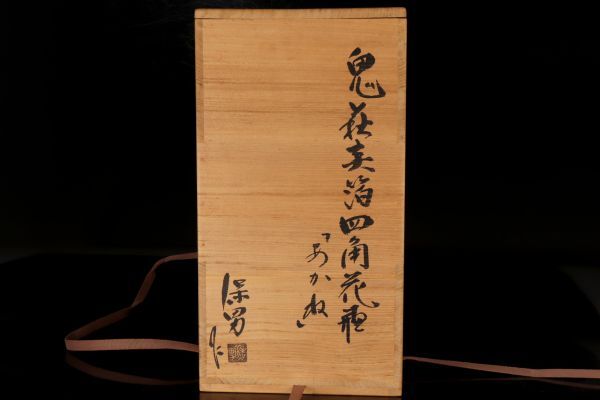 鬼萩美箔四角花瓶
「あかね」
保男作